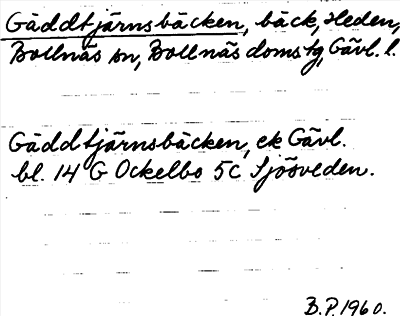 Gäddtjärnsbäcken, bäck, Heden,
Bollnäs sn, Bollnäs doms tg, Gävl. l.
Gäddtjärnsbäcken, ek Gävl.
bl. 14 G Ockelbo 5c Sjösveden.
B.P. 1960.